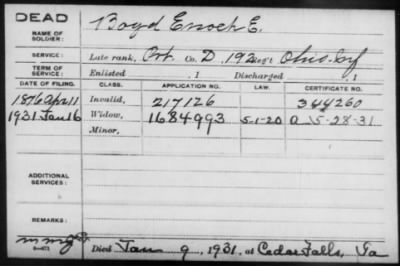 DEAD
NAME OF SOLDIER: Boyd Enoch E.
SERVICE: Late rank, Pvt. Co. D, 192 Regt Ohio Inf
TERM OF SERVICE: Enlisted , 1 Discharged , 1
DATE OF FILING. CLASS. APPLICATION NO. LAW. CERTIFICATE NO.
1876 Apr 11 Invalid, 217126 344260
1931 Jan 16 Widow, 1684993 5-1-20 A 5-28-31
Minor,
ADDITIONAL SERVICES:
REMARKS:
Died Jan 9, 1931, at Cedar Falls, Ia